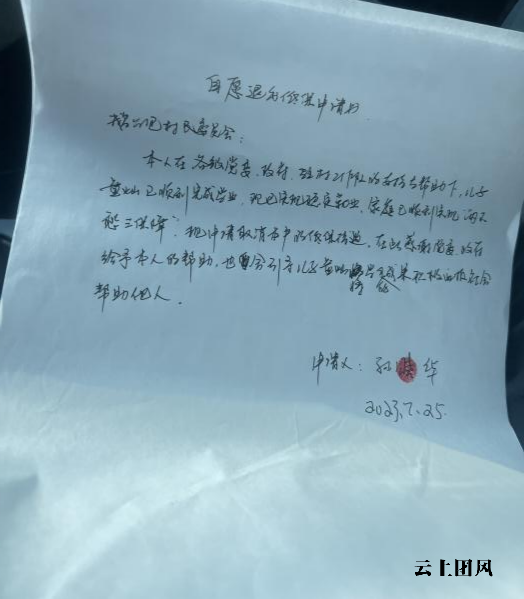 自愿退出低保申请书
村民委员会:
本人在 党委、政府、驻村工作队的支持与帮助下,儿子
已顺利完成学业,现已实现稳定就业,家庭已顺利实现"两不
愁三保障"。现申请取消本户的低保待遇,在此感谢党委、政府
给予本人的帮助,也会引导儿子 积极回报社会
帮助他人。
申请人: 华
2023.7.25.
云上团风